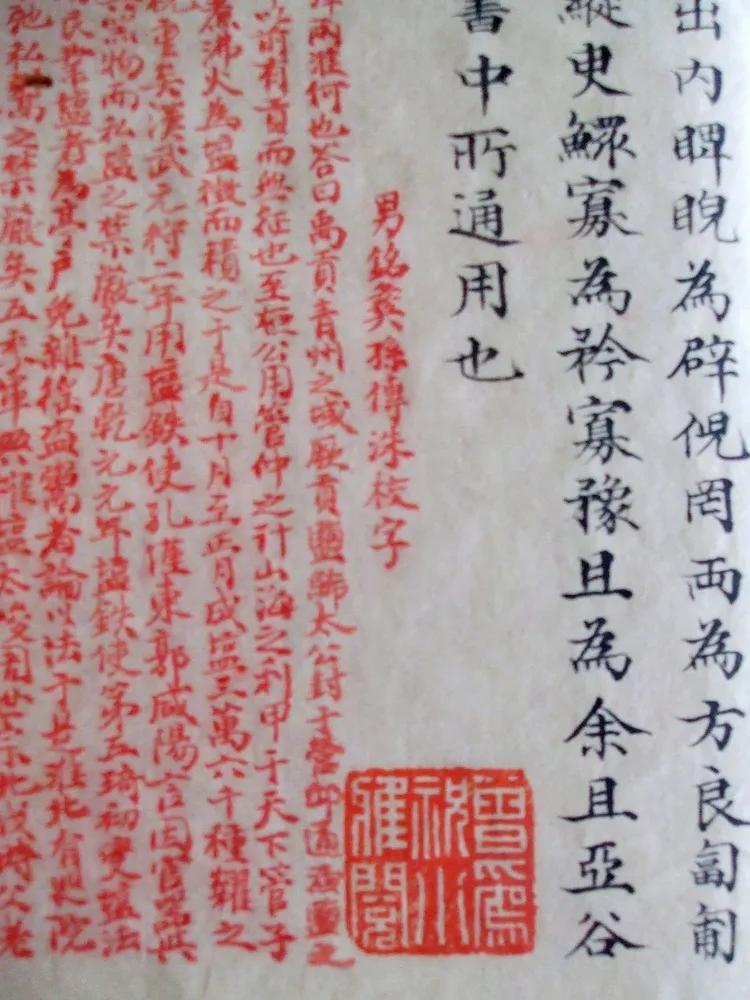 出内睥睨為辟倪罔兩為方良匐匍
縱史鰥寡為矜寡豫且為余且亞谷
書中所通用也
男銘彝孫傳洙校字
曾為徐小雅閱
兩淮何也答曰禹貢青州之域厥貢鹽絺太公封于營邱通魚鹽之
以前有貢而無征也至桓公用管仲之計山海之利甲于天下管子
煮沸火為鹽徵而積之于是自十月至正月成鹽三萬六千種糶之
重矣漢武元狩二年用鹽鐵使孔僅東郭咸陽言因官器
物而私鹽之禁嚴矣唐乾元元年鹽鐵使第五琦初變鹽法
良業鹽者為亭戶免雜徭盜鬻者論以法于是淮北有巡院
弛私鬻之禁嚴矣五季軍興淮鹽